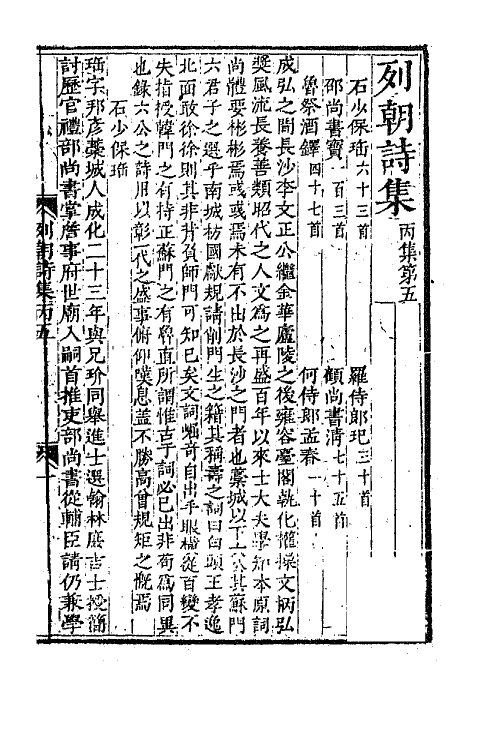 列朝詩集 丙集第五
石少保珤六十三首 羅侍郎玘三十首
邵尚書寶一百三首 顧尚書清七十五首
魯祭酒鐸四十七首 何侍郎孟春一十首
成弘之間長沙李文正公繼金華廬陵之後雍容臺閣執化權操文柄弘
奬風流長養善類昭代之人文爲之再盛百年以來士大夫學知本原詞
尚體要彬彬焉彧彧焉未有不出於長沙之門者也藁城以下六公其蘇門
六君子之選乎南城枋國獻規請削門生之籍其稱壽之詞曰白頭王孝逸
北面敢徐徐則其非背負師門可知已矣文詞㗲奇自出手眼横從百變不
失指授韓門之有持正蘇門之有魯直所謂惟古于詞必已出非苟爲同異
也錄六公之詩用以彰一代之盛事俯仰嘆息葢不勝高曾規矩之慨焉
石少保珤
珤字邦彥藁城人成化二十三年與兄玠同舉進士選翰林庶吉士授簡
討歷官禮部尚書掌詹事府世廟入嗣首推吏部尚書從輔臣請仍兼學
列朝詩集丙五
一